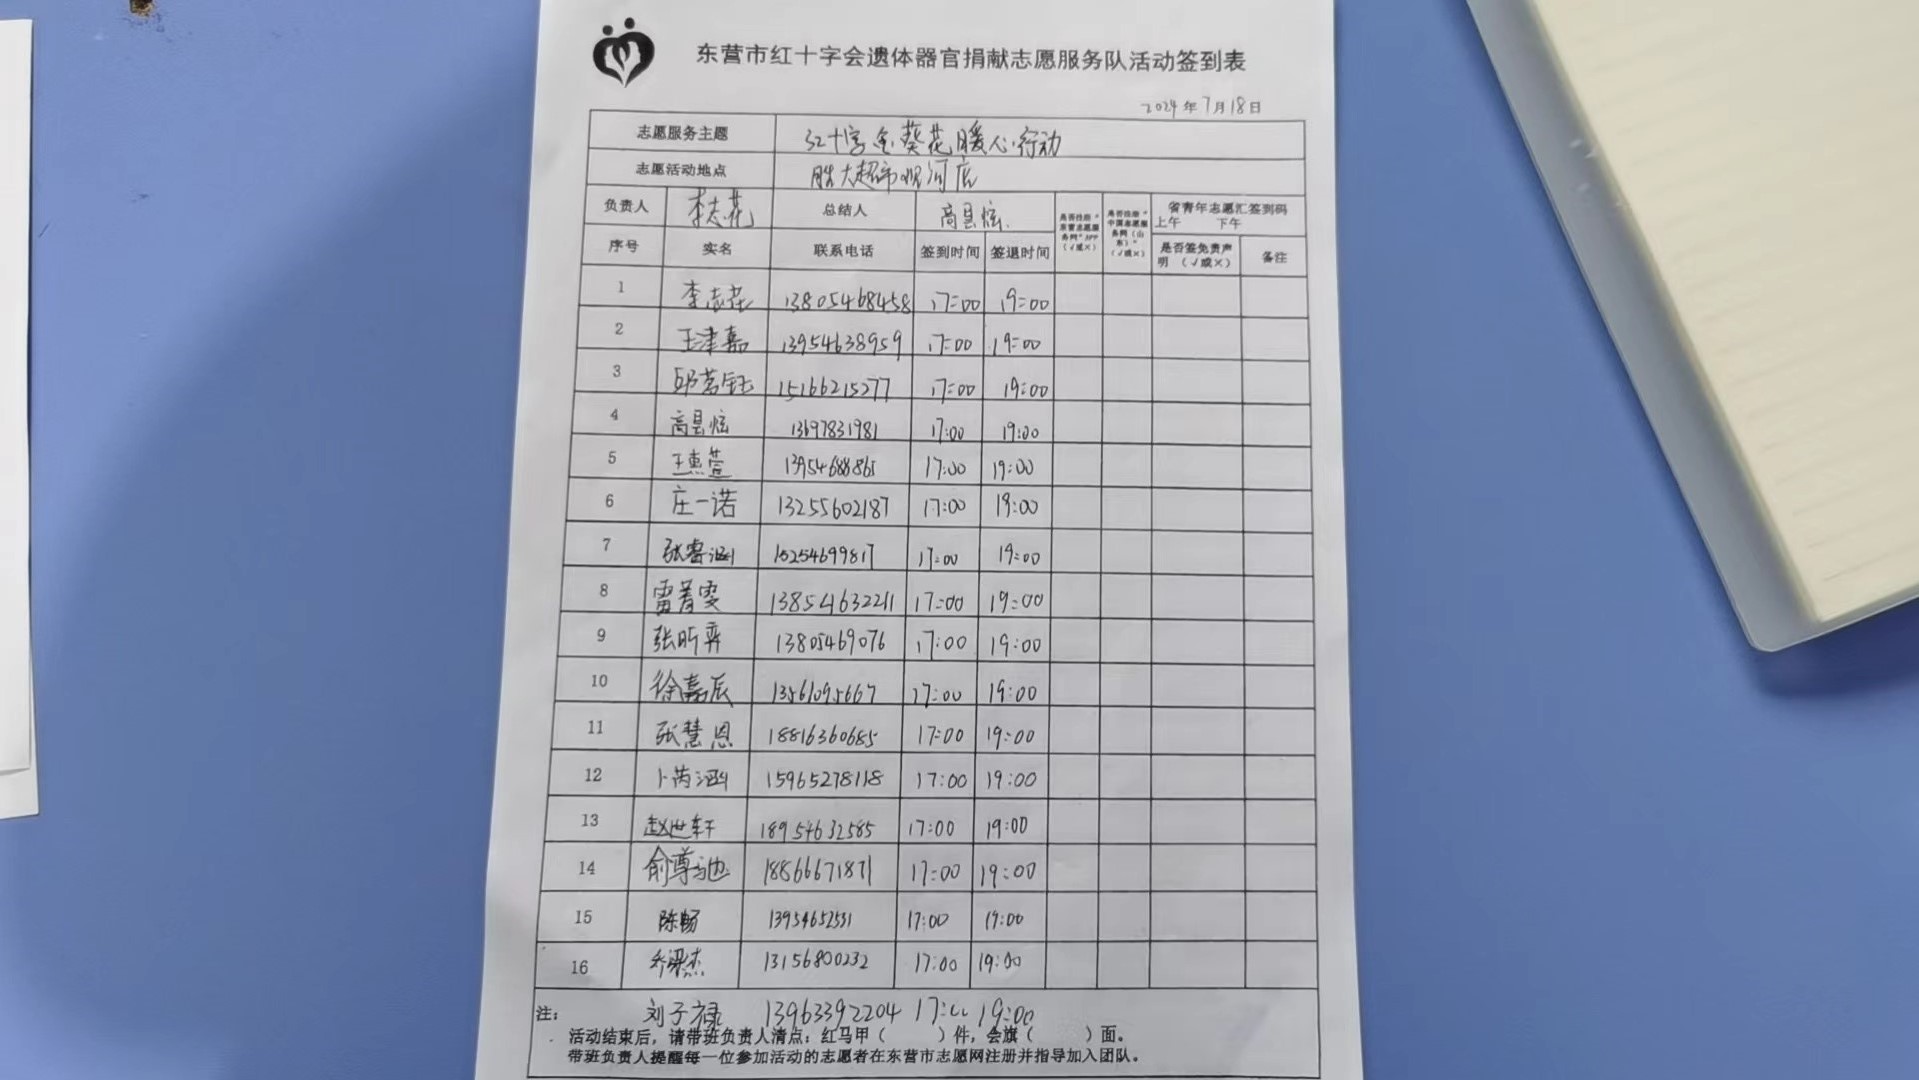 东营市红十字会遗体器官捐献志愿服务队活动签到表
2024年7月18日
志愿服务主题 红十字会葵花暖心行动
志愿活动地点 胜大超市观河店
负责人 李志花 总结人 高昱炫 是否注册“东营志愿服务网”APP（√或×） 是否注册“中国志愿服务网（山东）”（√或×） 省青年志愿汇签到码 上午 下午
序号 实名 联系电话 签到时间 签退时间 是否签免责声明（√或×） 备注
1 李志花 13805468458 17:00 19:00
2 王津嘉 13954638959 17:00 19:00
3 邱茗钰 15166215277 17:00 19:00
4 高昱炫 13697831981 17:00 19:00
5 王惠萱 13954688865 17:00 19:00
6 庄一诺 13255602187 17:00 19:00
7 张睿涵 15254699817 17:00 19:00
8 雷菁雯 13854632211 17:00 19:00
9 张昕弈 13805469076 17:00 19:00
10 徐嘉辰 13561095667 17:00 19:00
11 张慧恩 18816360685 17:00 19:00
12 卜芮涵 15965278118 17:00 19:00
13 赵世轩 18954632585 17:00 19:00
14 俞尊驰 18866671871 17:00 19:00
15 陈畅 13954652531 17:00 19:00
16 乔梁杰 13156800232 17:00 19:00
注： 刘子禄 13963392204 17:00 19:00
活动结束后，请带班负责人清点：红马甲（ ）件，会旗（ ）面。
带班负责人提醒每一位参加活动的志愿者在东营市志愿网注册并指导加入团队。